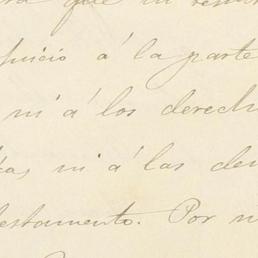 que mi
juicio á la parte
ni á los derech
as, ni á las de
testamento. Por